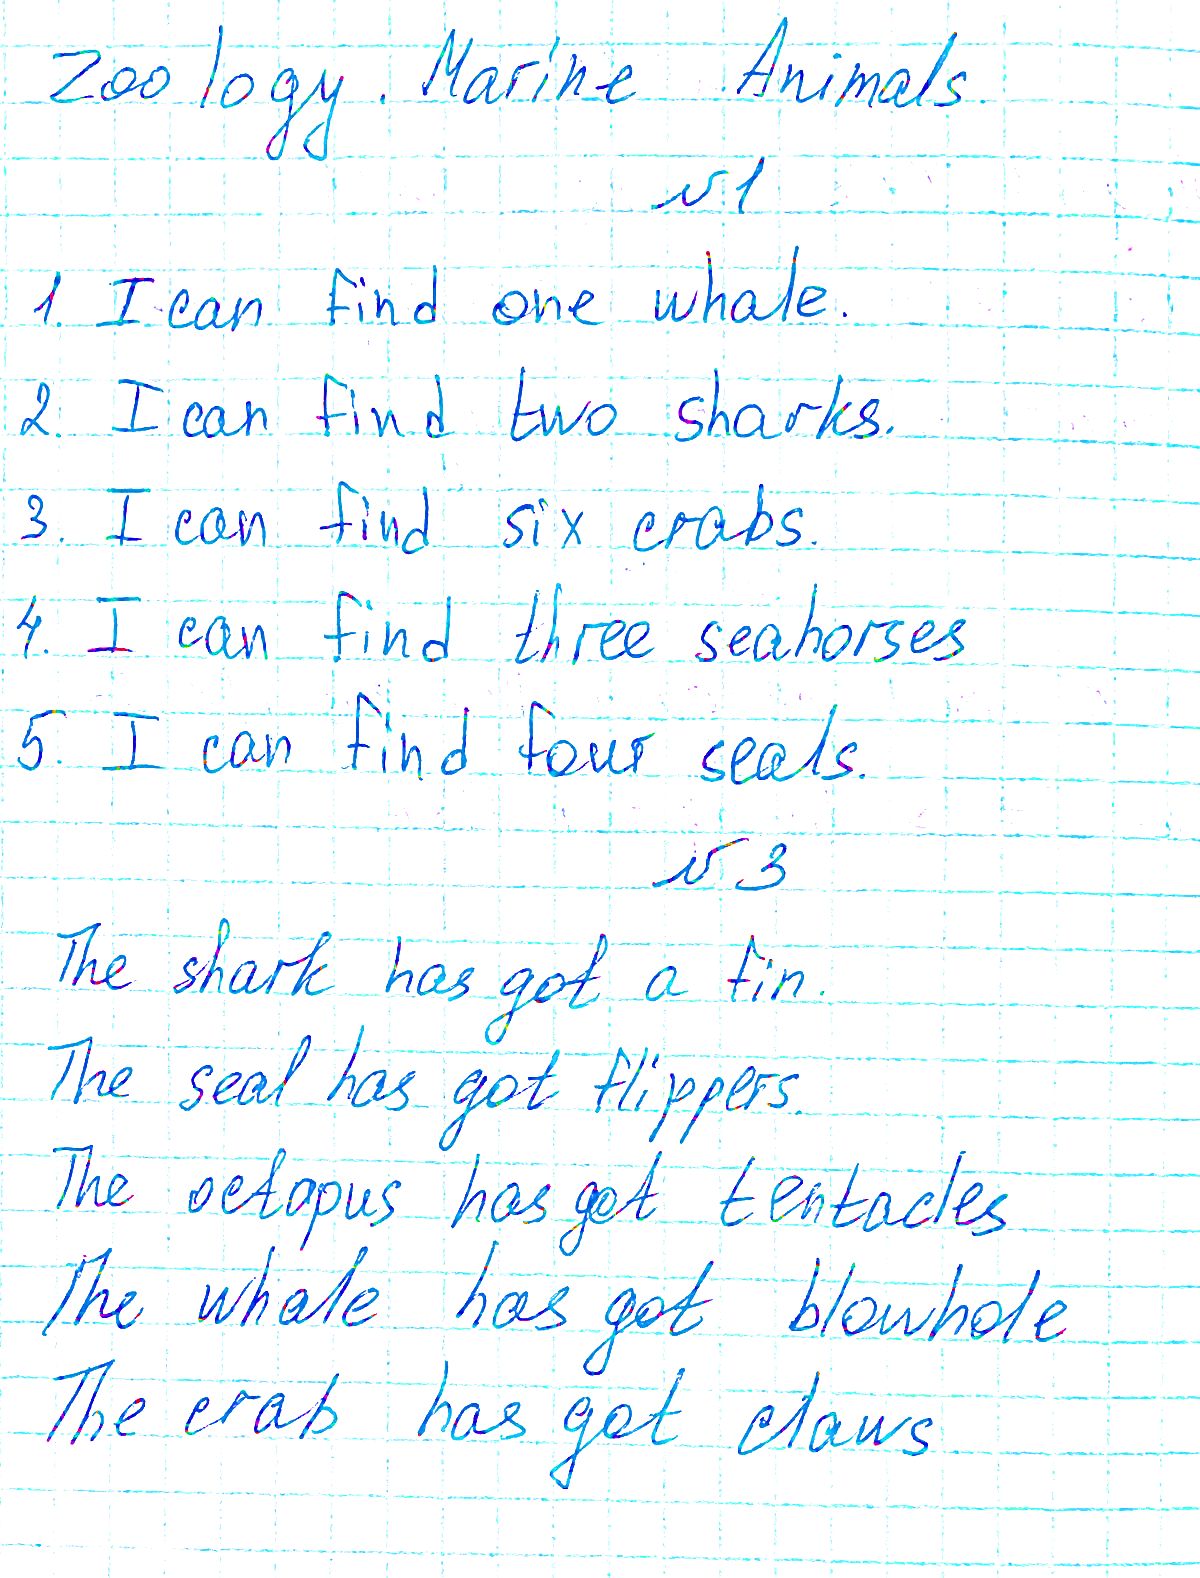 Zoology. Marine Animals.
№1
1. I can find one whale.
2. I can find two sharks.
3. I can find six crabs.
4. I can find three seahorses
5. I can find four seals.
№3
The shark has got a fin.
The seal has got flippers.
The octopus has got tentacles
The whale has got blowhole
The crab has got claws